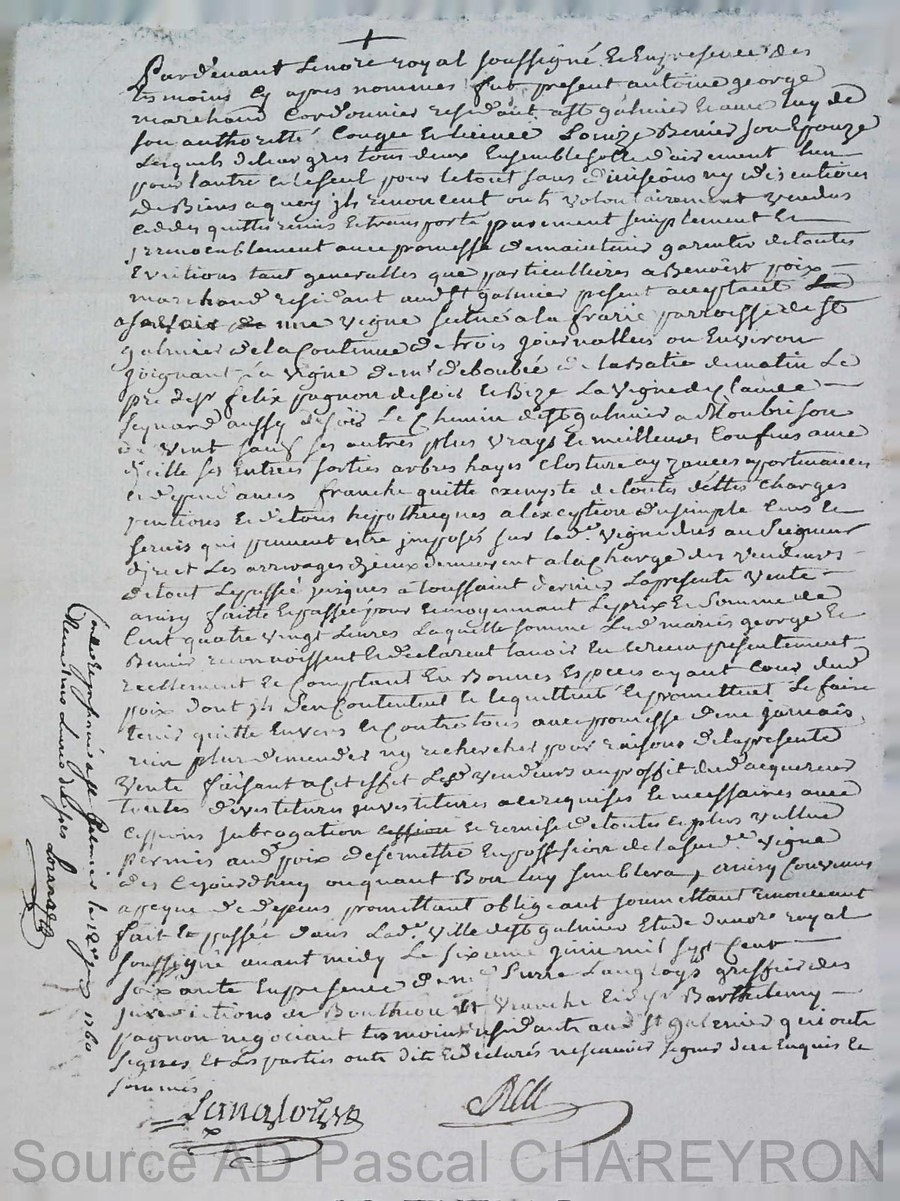 Pardevant le notre royal soussigné et en presence des
tesmoins cy apres nommes fut present antoine george
marchand Cordonnier residant a st galmier et avec luy de
son authoritté Congée et licence Louize Benier son Epouze
Lesquels de leur gres tous deux Ensemble sollidairement lun
pour lautre et le seul pour le tout sans divisions ny discutions
de Biens a quoy ils renoncent ont volontairement vendus
ceddes quittes remis et transporté purement simplement et
irrevocablement avec promesse de maintenir garentir de toutes
Evictions tant generalles que particullieres a Benoist poix
marchand residant aud st galmier present acceptant
une vigne scitué a la parroisse de st
galmier de la Contenue de trois journallees ou Environ
joignant la vigne de mr deboubée de la Batie de matin Le
pré de sr felix pagnon de soir et Bize La vigne de Claude
seynard aussy de soir Le Chemin de st galmier a Monbrison
de vent sauf ses autres plus vrays et meilleures Confins avec
jcelle ses Entrees sorties arbres hayes closture ayzances appartenances
et dependances franche quitte exempte de toutes dettes charges
pentions et de tous hipotheques a lexception du simple Cens et
servis qui peuvent estre imposés sur lade vigne dus au seigneur
direct Les arrerages djceux demeurent a la charge des vendeurs
de tout le passée jusques a toussaint dernier La presente vente
ainsy faitte et passée pour et moyennant Le prix et somme de
Cent quatre vingt Livres Laquelle somme Les d mariés george et
Benier reconnoissent et declarent lavoir eu et receu presentement
reellement et Comptant En Bonnes Especes ayant Cour dud
poix dont ils sen Contentent et le quittent et promettent Le faire
tenir quitte Envers et Contre tous avec promesse de ne jamais
rien plus demender ny rechercher pour raisons de la presente
vente faisant a Cet effet Lesd vendeurs au proffit dud acquereur
toutes divestitures jnvestitures a ce requises et necessaires avec
cessions subrogation cession et remise de toutes et plus vallue
permis aud poix de se mettre En possession de la sude vigne
des Cejourdhuy ou quant Bon luy semblera, ainsy Convenus
a peyne de depens promettant obligeant soumettant renonceant
fait et passée dans Lade ville de st galmier Etude du notre royal
soussigné avant midy Le sixieme juin mil sept Cent
soixante En presence de me Pierre Langloys greffier des
jurisdictions de Bouthéon et Veauche et de sr Barthelemy
pagnon negociant tesmoins residants aud st galmier qui onts
signes et Les parties onts dit et declarés ne scavoir signer de ce Enquis et
sommés
Langloys
Controllé et jnsinué a st Galmier le juin 1760